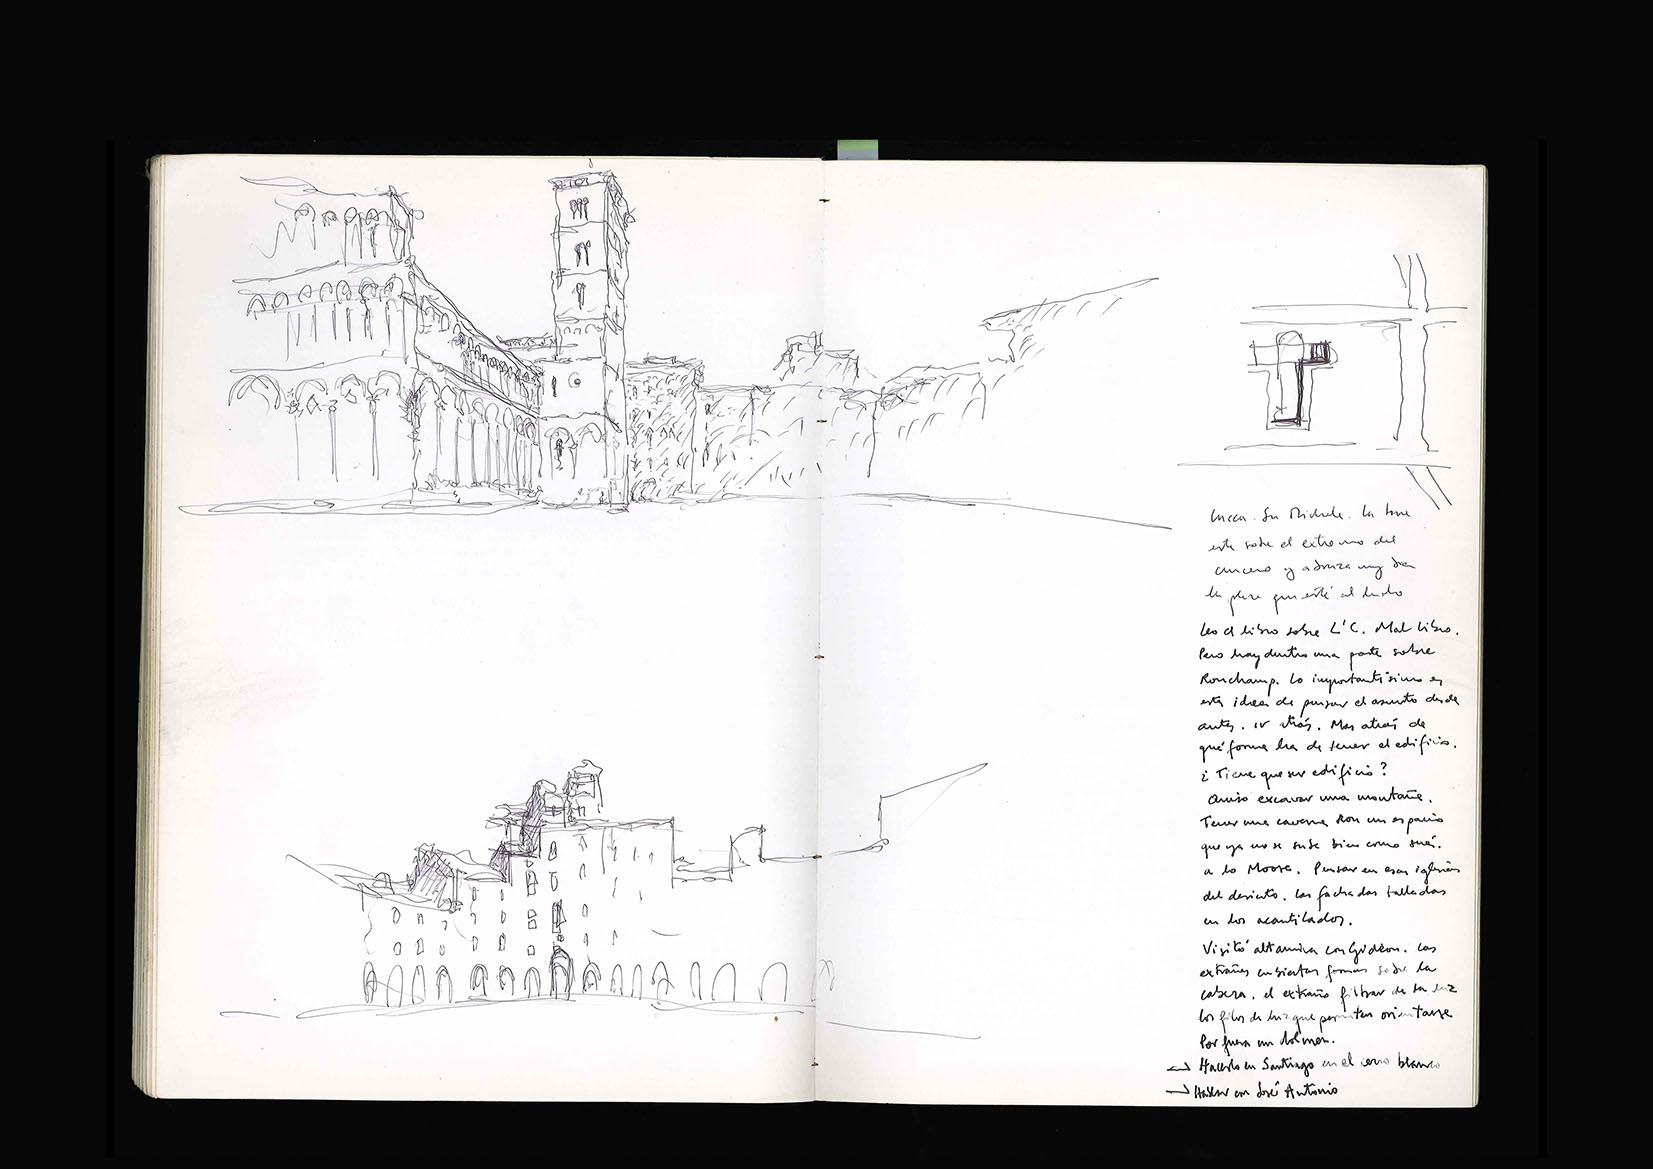 Lucca. San Michele. La torre
esta sobre el extremo del
crucero y abraza muy bien
la plaza que está al lado
Leo el libro sobre L'C. Mal libro.
Pero hay dentro una parte sobre
Ronchamp. Lo importantísimo es
esta idea de pensar el asunto desde
antes. ir atrás. Mas atrás de
qué forma ha de tener el edificio.
¿Tiene que ser edificio?
Quiso excavar una montaña.
Tener una caverna con un espacio
que ya no se sabe bien como será.
a lo Moore. Pensar en esas iglesias
del desierto. Las fachadas talladas
en los acantilados.
Visitó altamira con Gideon. Las
extrañas formas sobre la
cabeza. el extraño filtrar de la luz
los filos de luz que permiten orientarse
Por fuera un dolmen.
→ Hacerlo en Santiago en el cerro blanco
→ Hablar con José Antonio